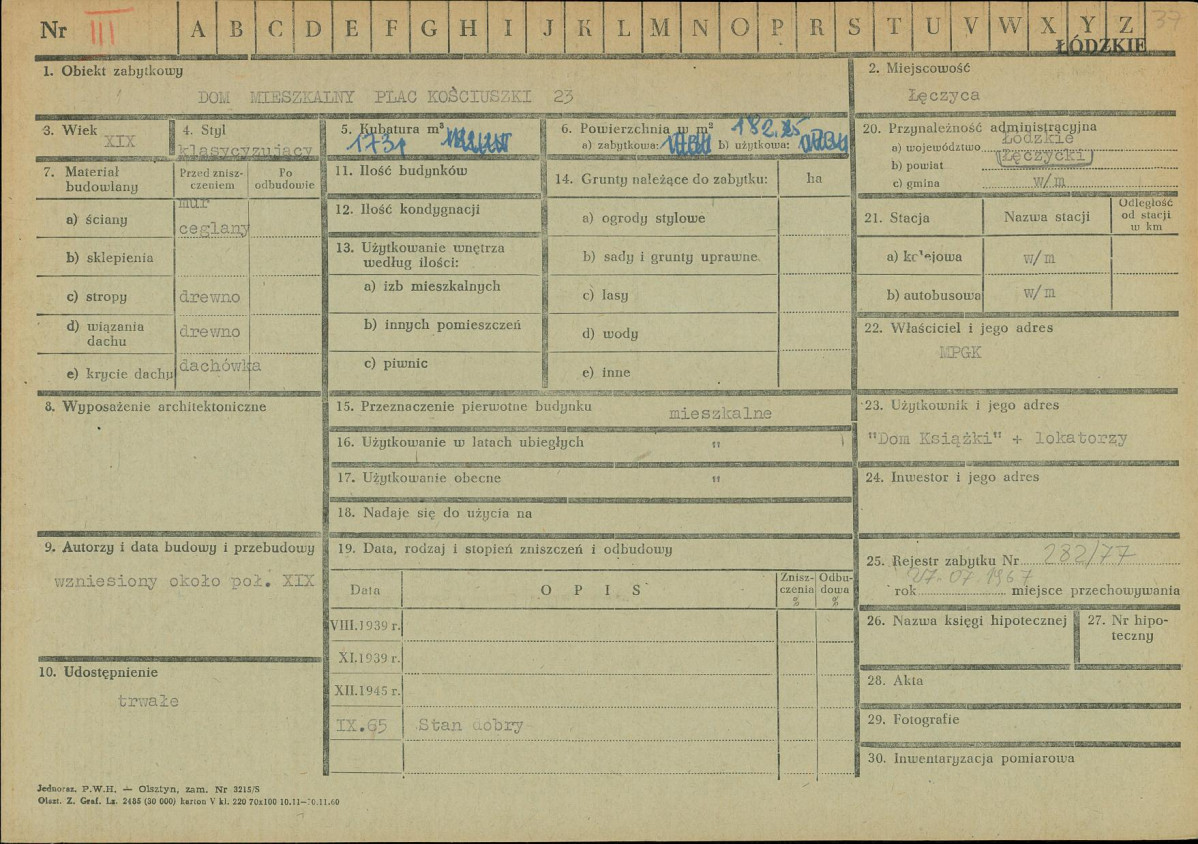 Nr III A B C D E F G H I J K L M N O P R S T U V W X Y Z 37
ŁÓDZKIE
1. Obiekt zabytkowy
DOM MIESZKALNY PLAC KOŚCIUSZKI 23
2. Miejscowość
Łęczyca
3. Wiek
XIX
4. Styl
klasycyzujący
5. Kubatura m³
1731
6. Powierzchnia w m² 182.25
a) zabytkowa: b) użytkowa:
20. Przynależność administracyjna
a) województwo Łódzkie
b) powiat Łęczycki
c) gmina w/m
7. Materiał budowlany
Przed zniszczeniem
Po odbudowie
a) ściany mur ceglany
b) sklepienia
c) stropy drewno
d) wiązania dachu drewno
e) krycie dachu dachówka
11. Ilość budynków
12. Ilość kondygnacji
13. Użytkowanie wnętrza
według ilości:
a) izb mieszkalnych
b) innych pomieszczeń
c) piwnic
14. Grunty należące do zabytku: ha
a) ogrody stylowe
b) sady i grunty uprawne
c) lasy
d) wody
e) inne
21. Stacja
Nazwa stacji
Odległość od stacji w km
a) kolejowa w/m
b) autobusowa w/m
22. Właściciel i jego adres
MPGK
8. Wyposażenie architektoniczne
15. Przeznaczenie pierwotne budynku mieszkalne
16. Użytkowanie w latach ubiegłych "
17. Użytkowanie obecne "
18. Nadaje się do użycia na
23. Użytkownik i jego adres
"Dom Książki" + lokatorzy
24. Inwestor i jego adres
9. Autorzy i data budowy i przebudowy
wzniesiony około poł. XIX
19. Data, rodzaj i stopień zniszczeń i odbudowy
Data
O P I S
Zniszczenia %
Odbudowa %
VIII.1939 r.
XI.1939 r.
XII.1945 r.
IX.65 Stan dobry
25. Rejestr zabytku Nr 282/77
27.07.1967
rok miejsce przechowywania
26. Nazwa księgi hipotecznej
27. Nr hipoteczny
28. Akta
29. Fotografie
30. Inwentaryzacja pomiarowa
10. Udostępnienie
trwałe
Jednoraz. P.W.H. — Olsztyn, zam. Nr 3215/S